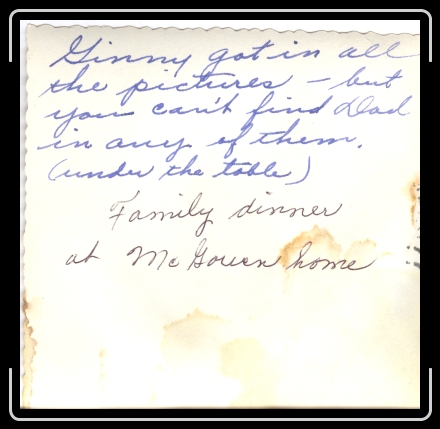 Ginny got in all
the pictures – but
you can't find Dad
in any of them.
(under the table)
Family dinner
at McGouen home